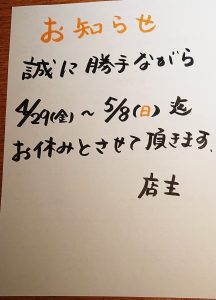 お知らせ
誠に勝手ながら
4/29(金)～5/8(日)迄
お休みとさせて頂きます.
店主